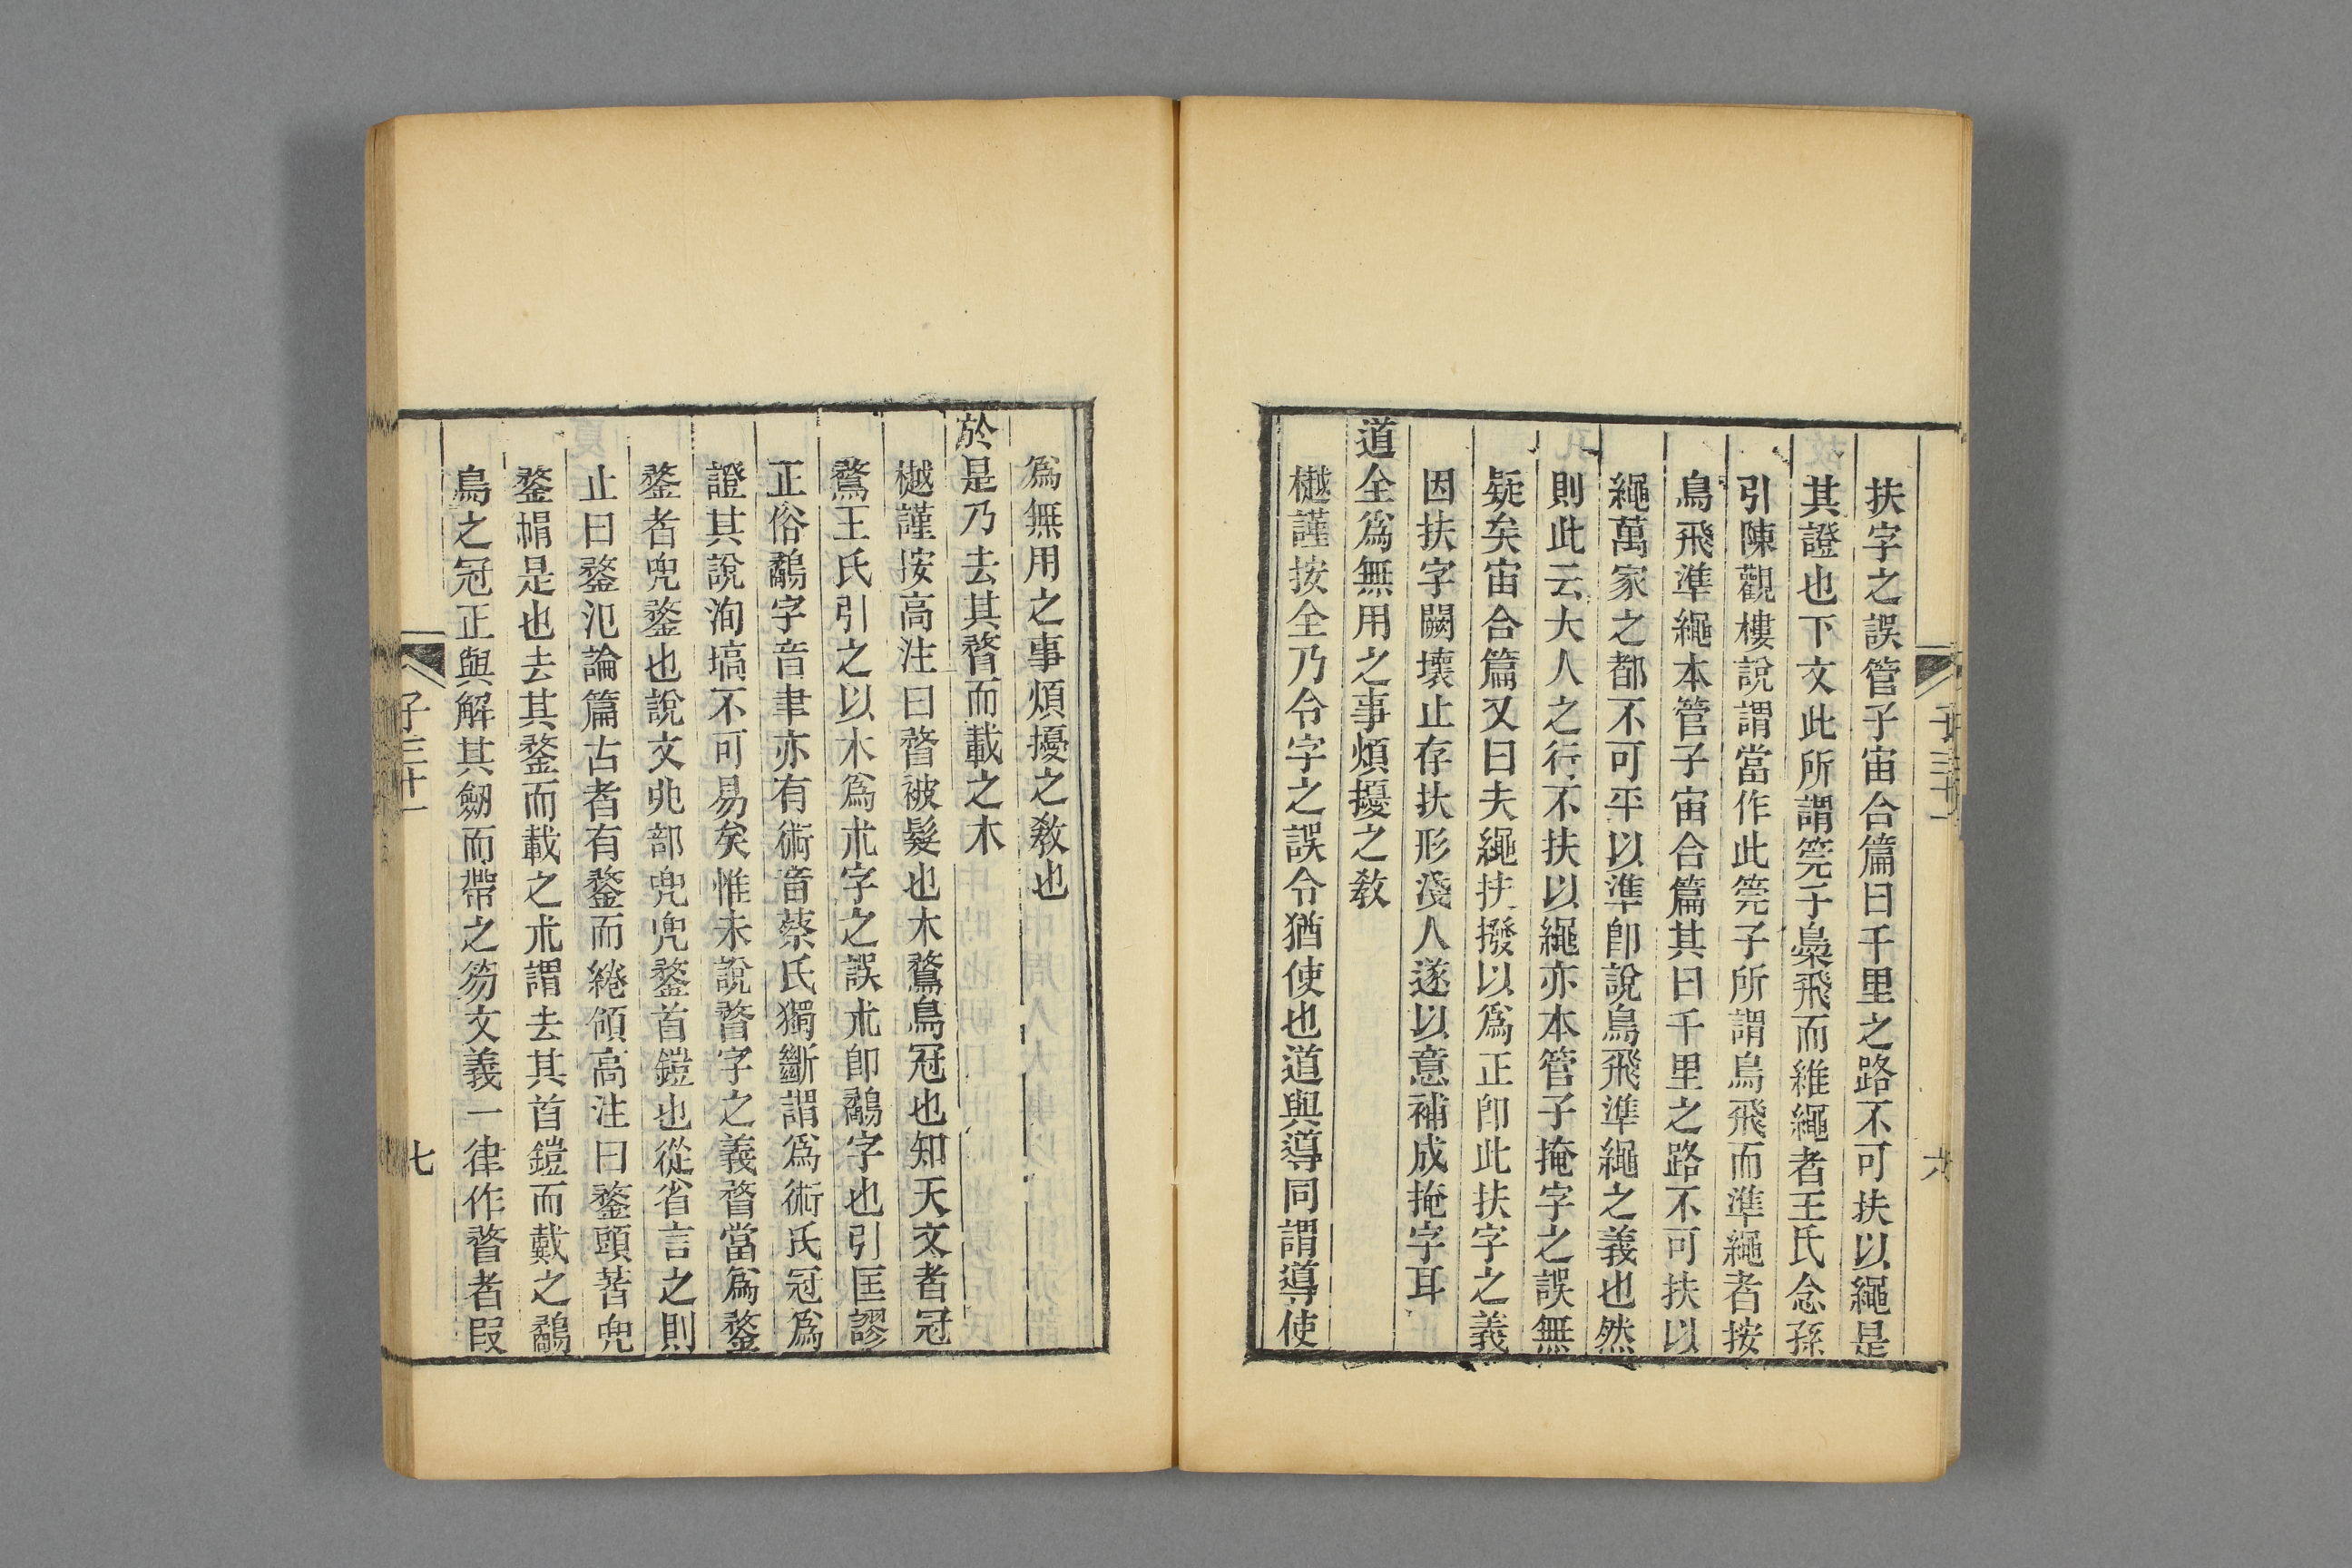 扶字之誤管子宙合篇曰千里之路不可扶以繩是
其證也下文此所謂筦子梟飛而維繩者王氏念孫
引陳觀樓說謂當作此筦子所謂鳥飛而準繩者按
鳥飛準繩本管子宙合篇其曰千里之路不可扶以
繩萬家之都不可平以準卽說鳥飛準繩之義也然
則此云大人之行不扶以繩亦本管子掩字之誤無
疑矣宙合篇又曰夫繩扶撥以爲正卽此扶字之義
因扶字闕壞止存扶形淺人遂以意補成掩字耳
道全爲無用之事煩擾之敎
樾謹按全乃令字之誤令猶使也道與導同謂導使
子三十一
六
爲無用之事煩擾之敎也
於是乃去其瞀而載之木
樾謹按高注曰瞀被髮也木鶩鳥冠也知天文者冠
鶩王氏引之以木爲朮字之誤朮卽鷸字也引匡謬
正俗鷸字音聿亦有術音蔡氏獨斷謂爲術氏冠爲
證其說洵塙不可易矣惟未說瞀字之義瞀當爲鍪
鍪者兜鍪也說文𠑹部兜兜鍪首鎧也從省言之則
止曰鍪氾論篇古者有鍪而綣領高注曰鍪頭著兜
鍪帽是也去其鍪而載之朮謂去其首鎧而戴之鷸
鳥之冠正與解其劒而帶之笏文義一律作瞀者叚
子三十一
七